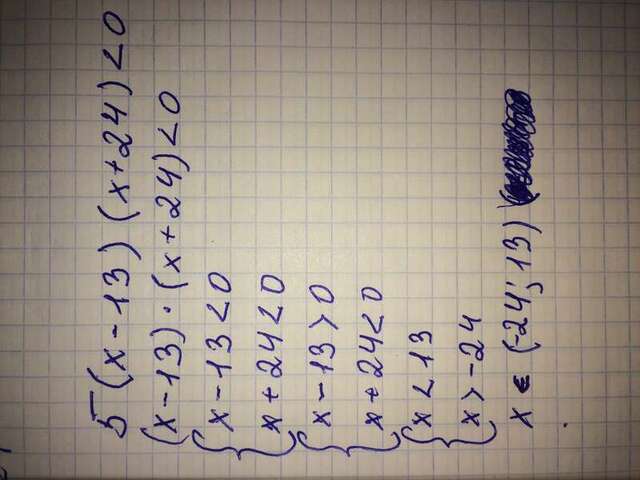 5(x-13)(x+24)<0
(x-13)·(x+24)<0
{x-13<0
x+24<0
{x-13>0
x+24<0
{x<13
x>-24
x∈(-24;13)